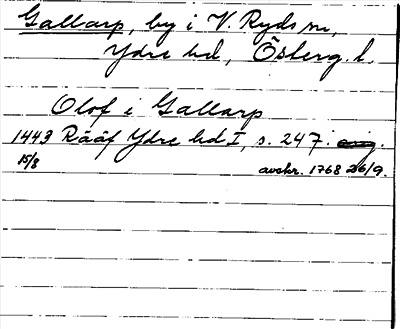 Gallarp, by i V. Ryds sn,
Ydre hd, Österg. l.
Olof i Gallarp
1443 Rääf Ydre hd I, s. 247.
15/8 avskr. 1768 26/9.